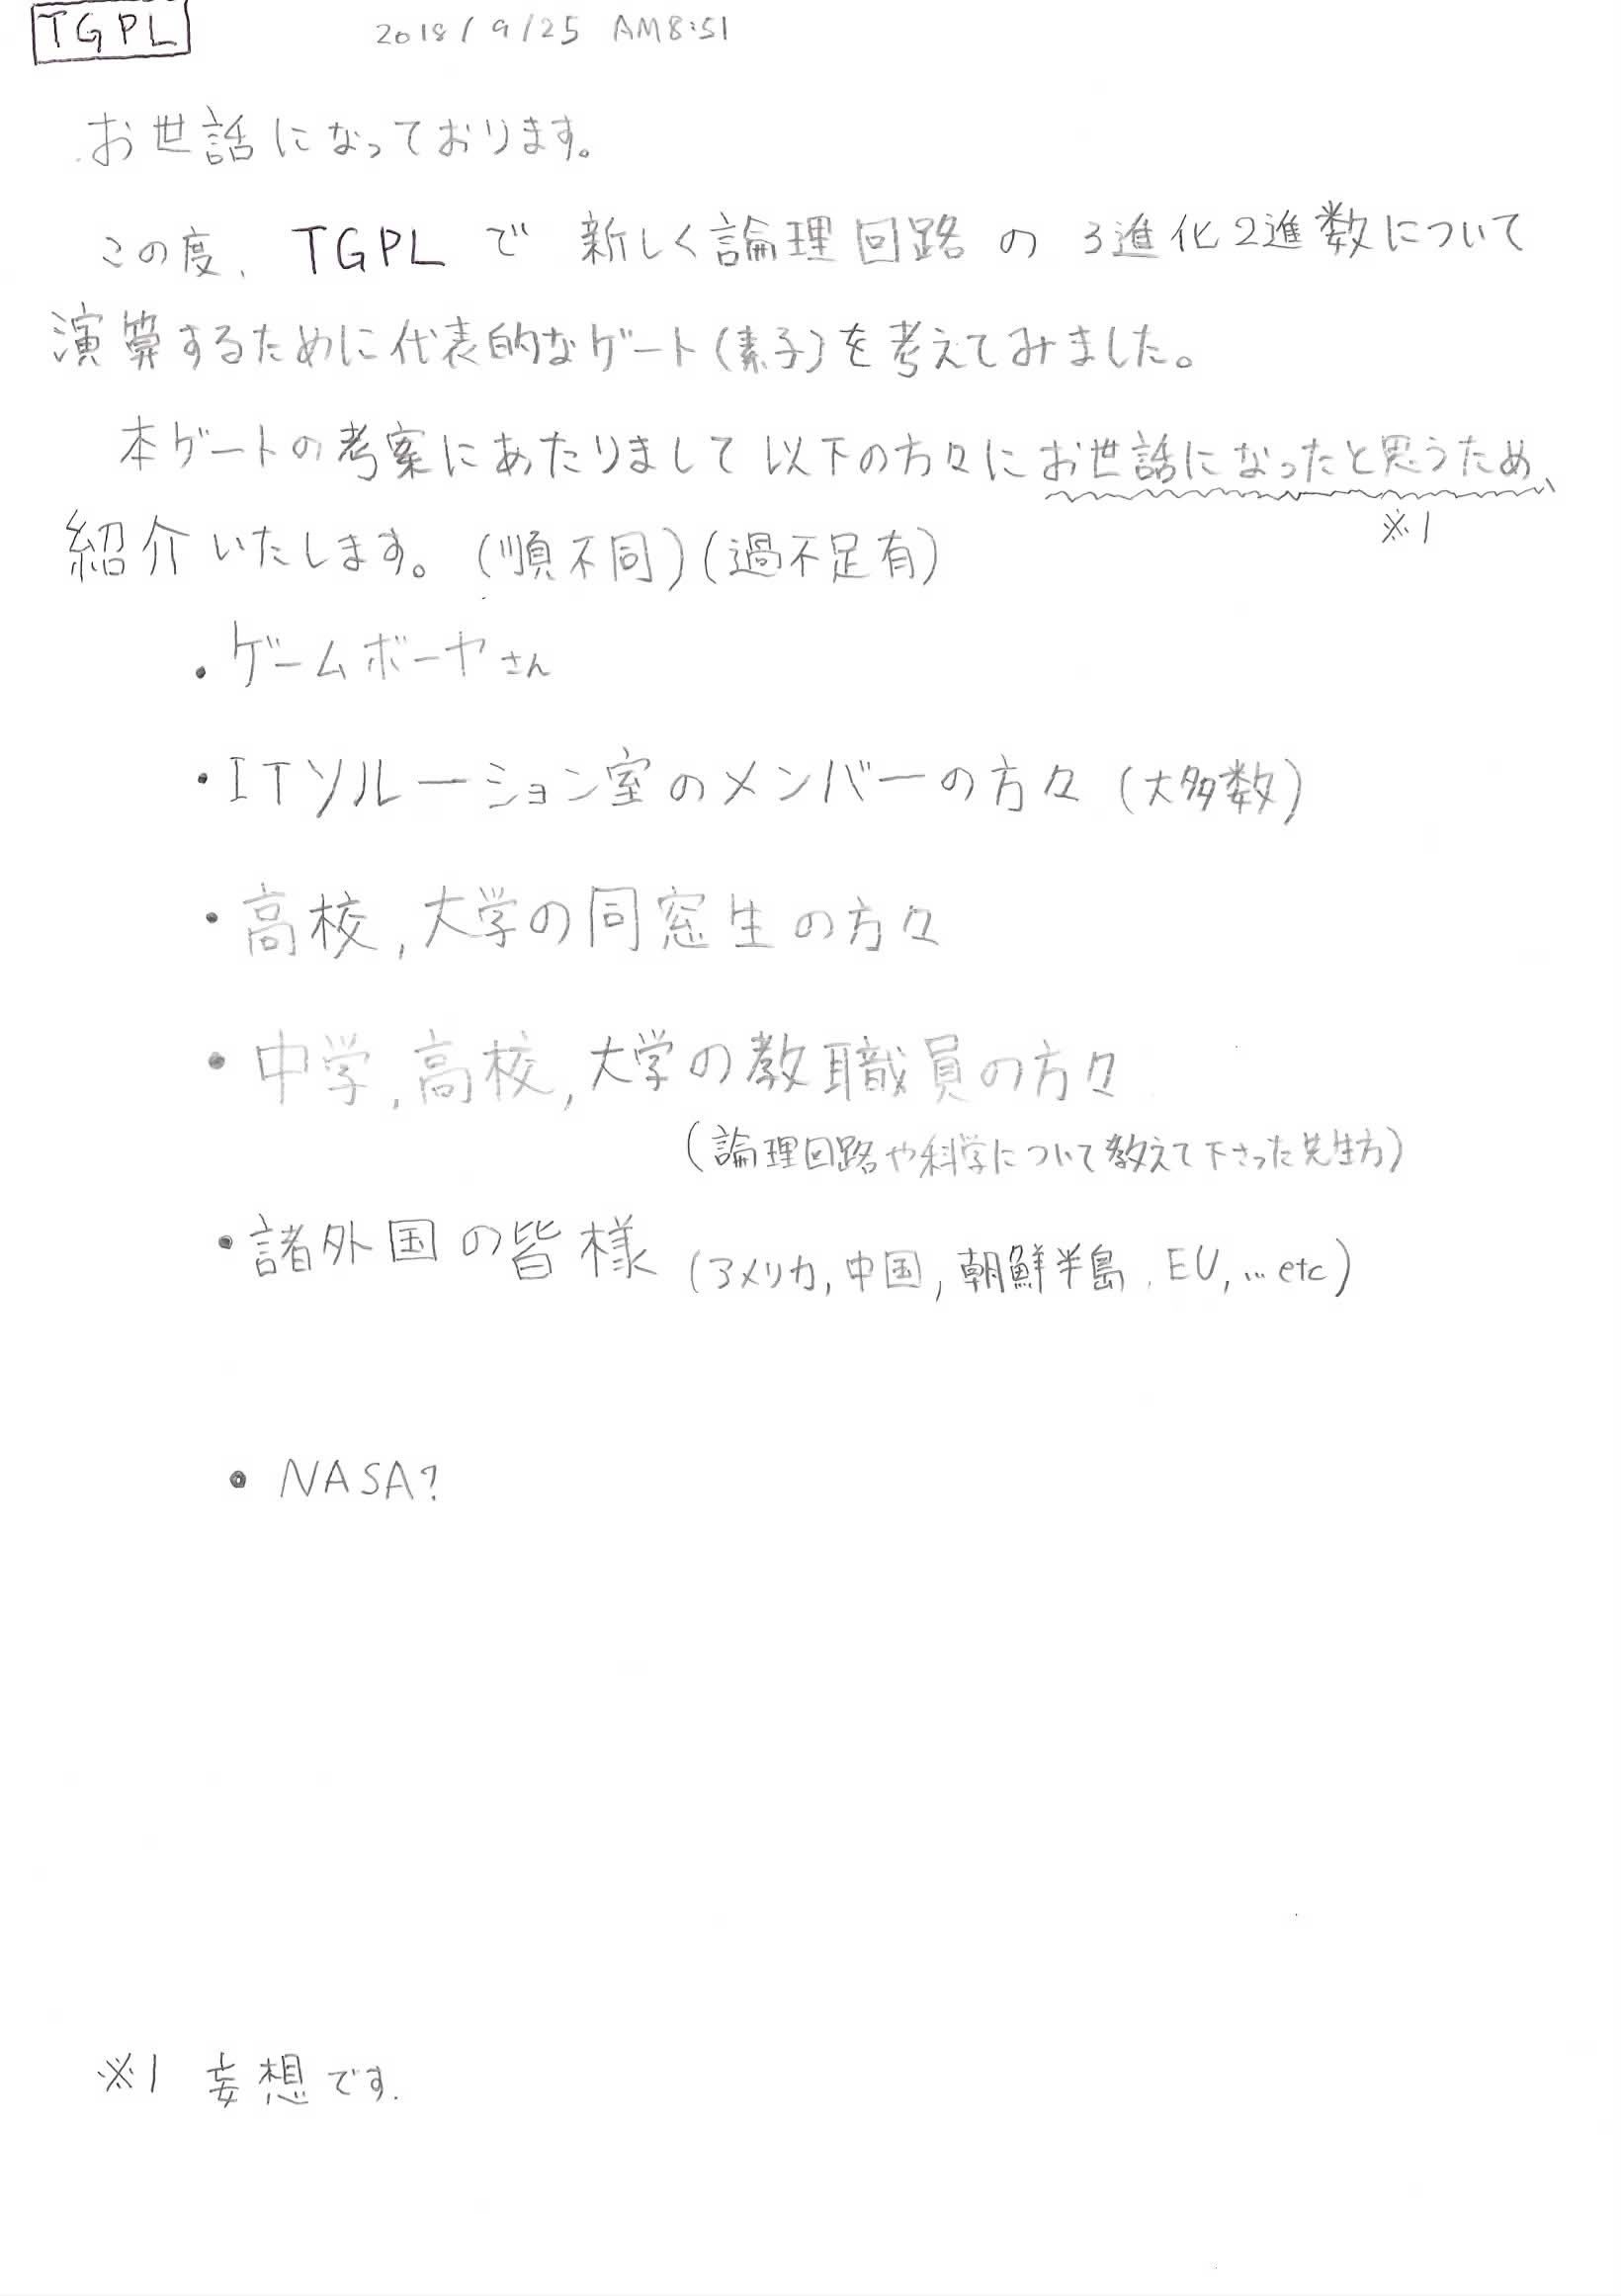 TGPL 2018/9/25 AM8:51
お世話になっております。
この度、TGPLで新しく論理回路の3進化2進数について
演算するために代表的なゲート(素子)を考えてみました。
本ゲートの考案にあたりまして以下の方々にお世話になったと思うため、
※1
紹介いたします。(順不同)(過不足有)
・ゲームボーヤさん
・ITソルーション室のメンバーの方々(大多数)
・高校,大学の同窓生の方々
・中学,高校,大学の教職員の方々
(論理回路や科学について教えて下さった先生方)
・諸外国の皆様(アメリカ,中国,朝鮮半島,EU,…etc)
・NASA?
※1 妄想です.